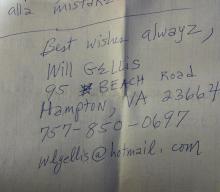 alla mistake
Best wishes alwayz,
Will Gellis
95 BEACH Road
Hampton, VA 23664
757-850-0697
wlgellis@hotmail.com